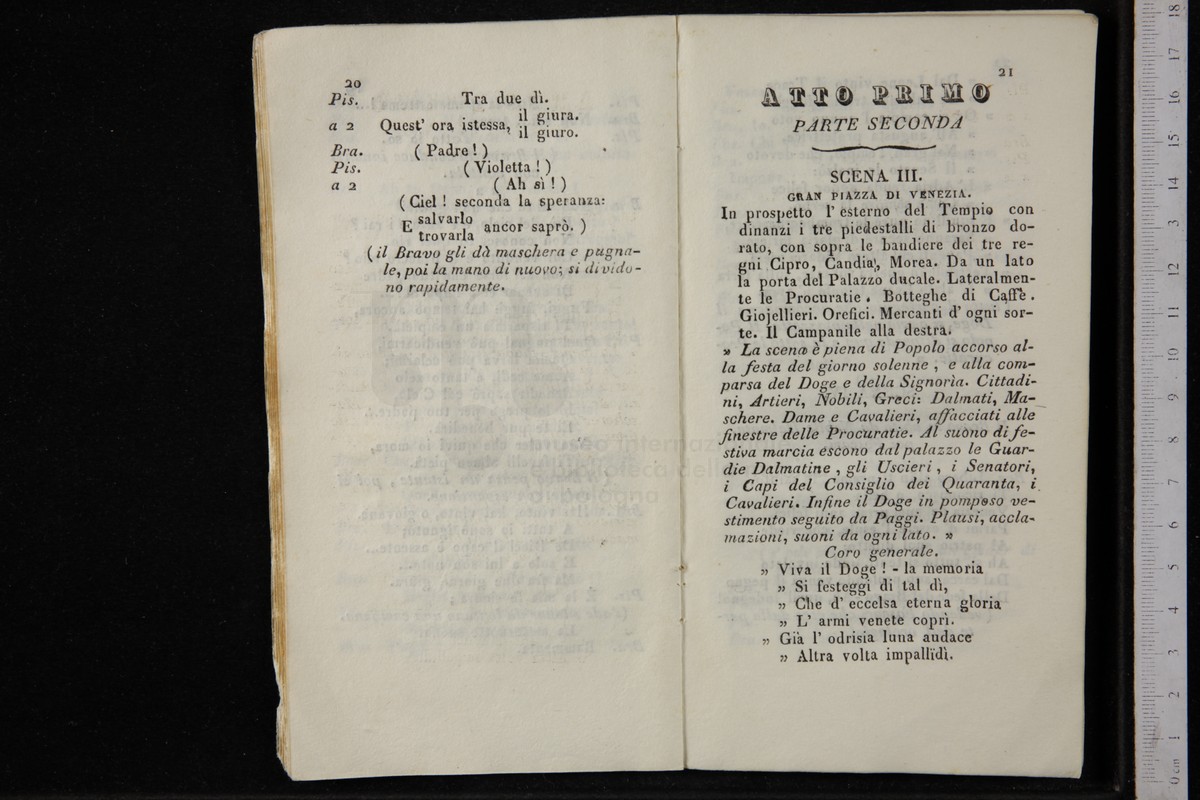 20
Pis. Tra due dì.
a 2 Quest' ora istessa, il giura.
il giuro.
Bra. ( Padre ! )
Pis. ( Violetta ! )
a 2 ( Ah sì ! )
( Ciel ! seconda la speranza:
E salvarlo ancor saprò. )
trovarla
( il Bravo gli dà maschera e pugna-
le, poi la mano di nuovo; si divido-
no rapidamente.
21
ATTO PRIMO
PARTE SECONDA
SCENA III.
GRAN PIAZZA DI VENEZIA.
In prospetto l' esterno del Tempio con
dinanzi i tre piedestalli di bronzo do-
rato, con sopra le bandiere dei tre re-
gni Cipro, Candia, Morea. Da un lato
la porta del Palazzo ducale. Lateralmen-
te le Procuratie. Botteghe di Caffè.
Giojellieri. Orefici. Mercanti d' ogni sor-
te. Il Campanile alla destra.
» La scena è piena di Popolo accorso al-
la festa del giorno solenne ; e alla com-
parsa del Doge e della Signorìa. Cittadi-
ni, Artieri, Nobili, Greci: Dalmati, Ma-
schere. Dame e Cavalieri, affacciati alle
finestre delle Procuratie. Al suono di fe-
stiva marcia escono dal palazzo le Guar-
die Dalmatine , gli Uscieri , i Senatori,
i Capi del Consiglio dei Quaranta, i
Cavalieri. Infine il Doge in pomposo ve-
stimento seguito da Paggi. Plausi, accla-
mazioni, suoni da ogni lato. »
Coro generale.
» Viva il Doge ! - la memoria
» Si festeggi di tal dì,
» Che d' eccelsa eterna gloria
» L' armi venete coprì.
» Già l' odrisia luna audace
» Altra volta impallidì.
museo internaz
biblioteca della
bologna
0 cm 1 2 3 4 5 6 7 8 9 10 11 12 13 14 15 16 17 18